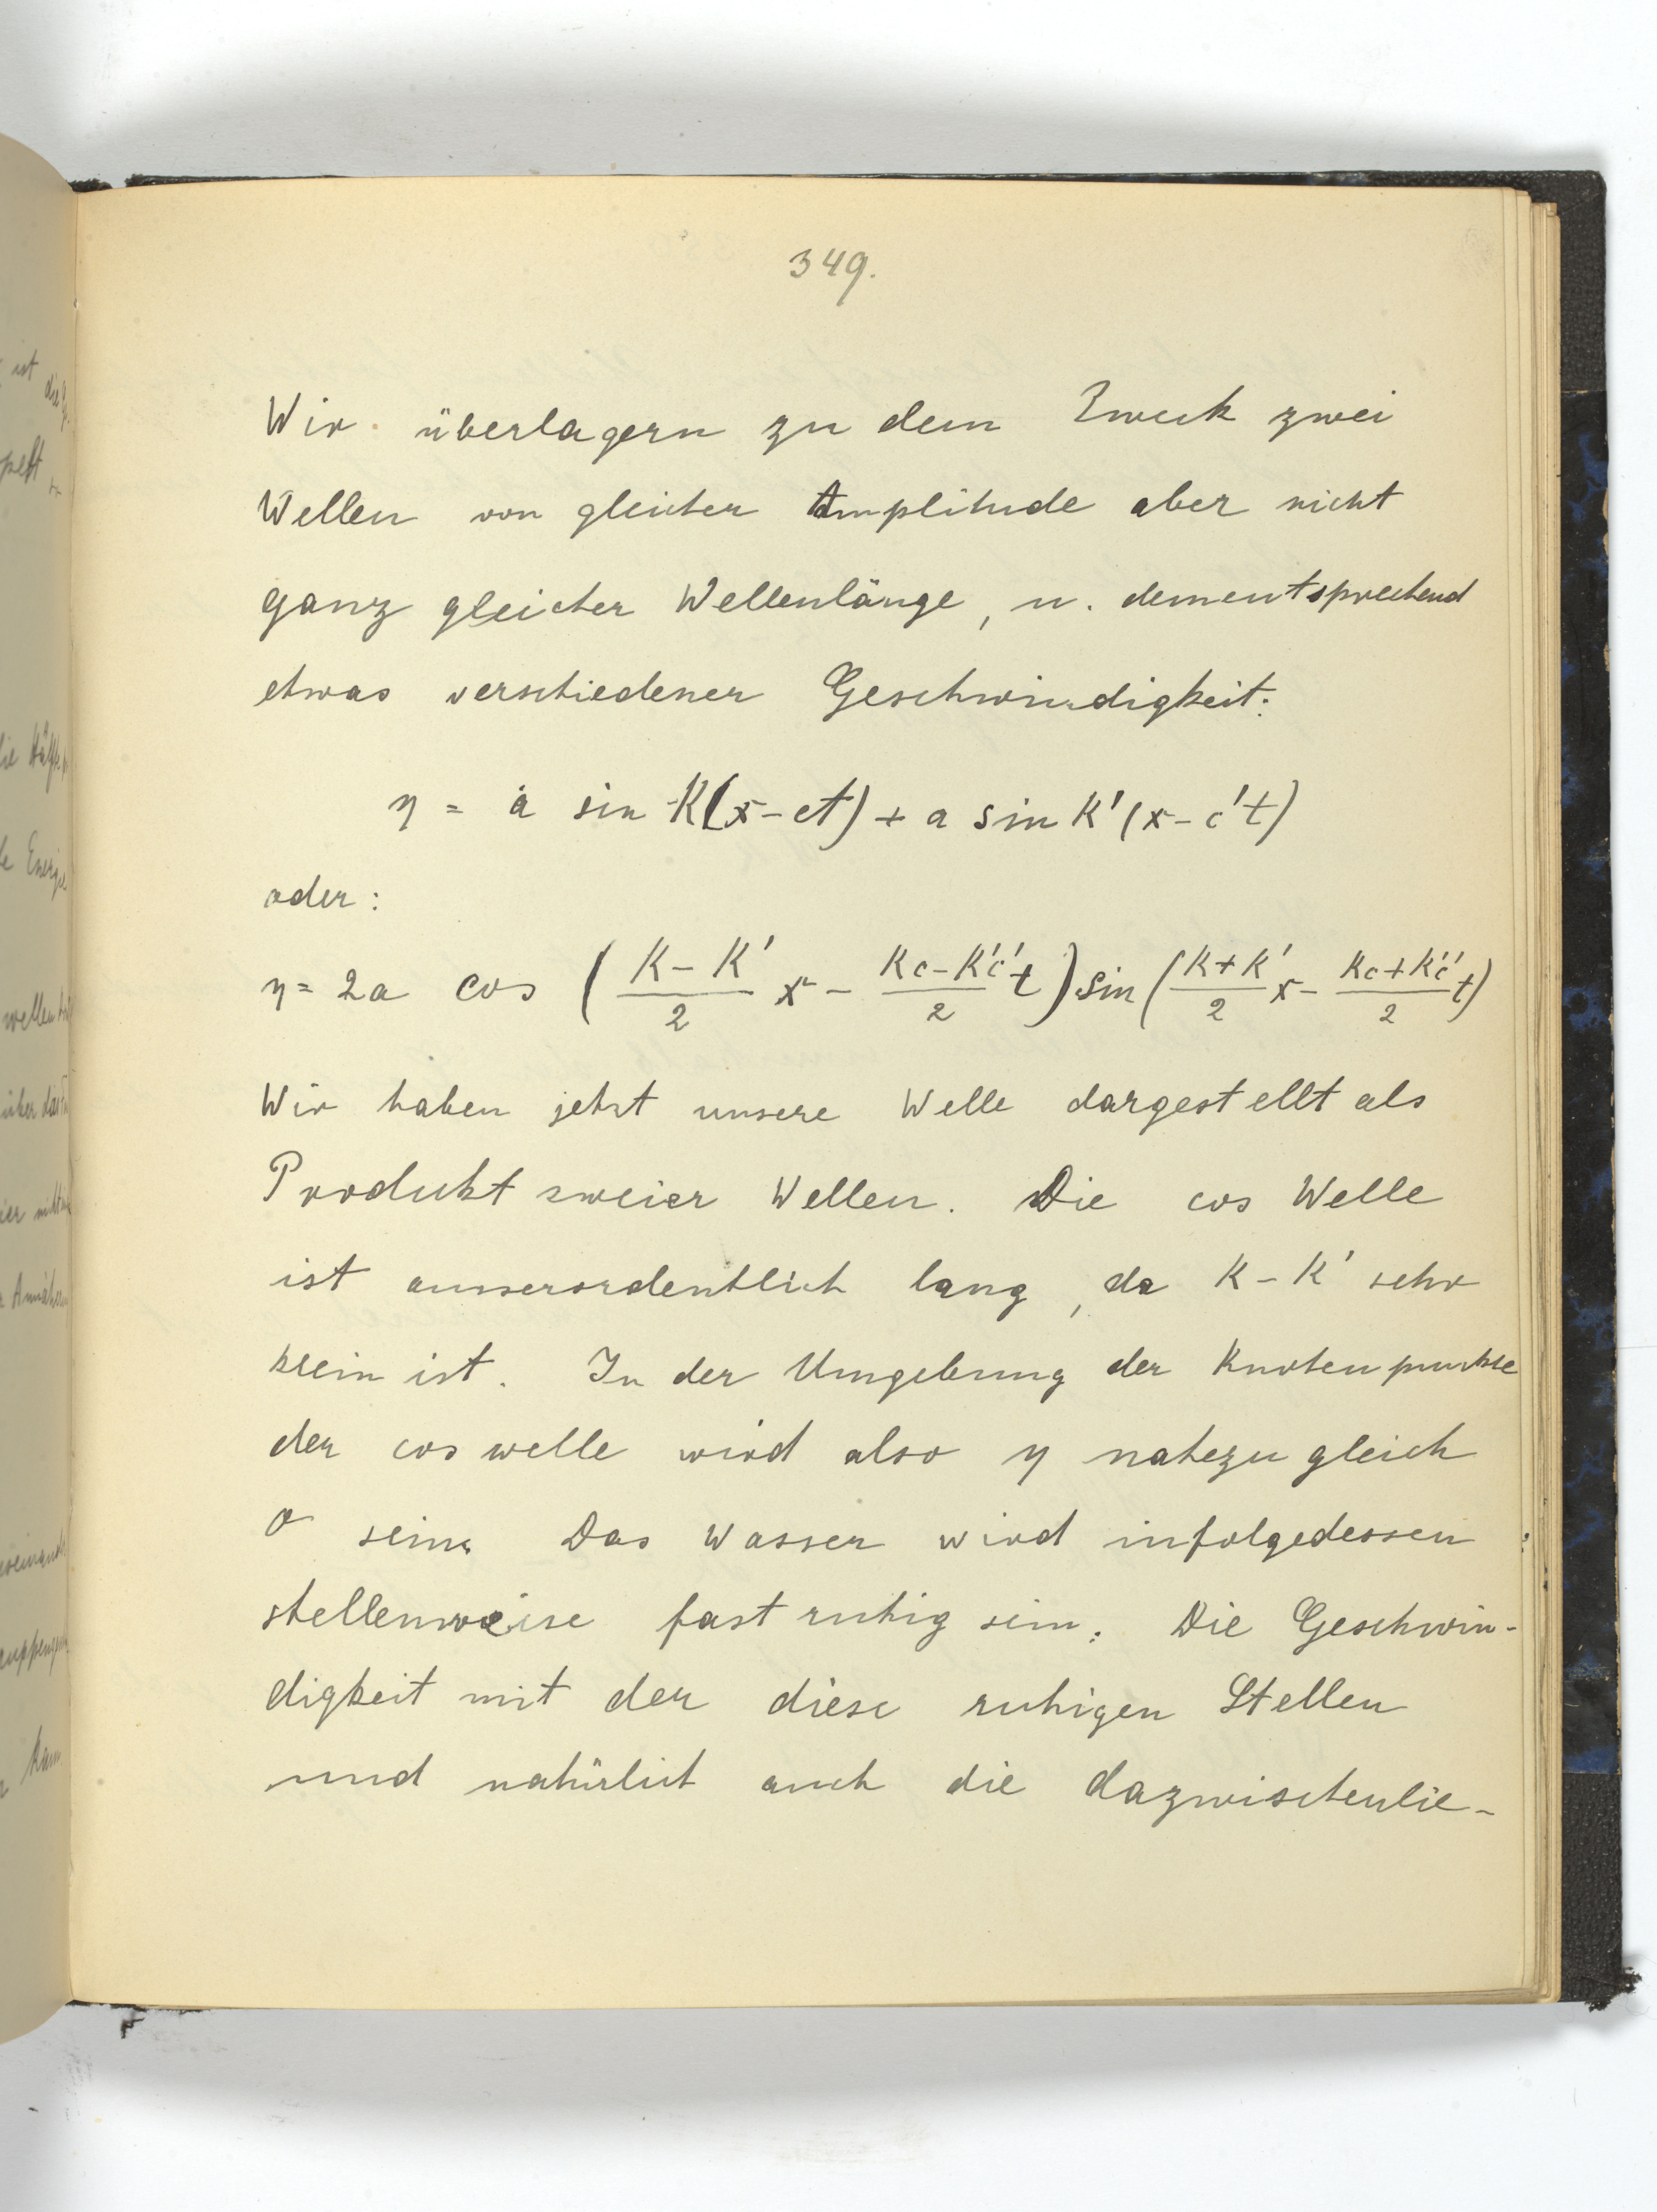 349.
Wir überlagern zu dem Zweck zwei
Wellen von gleicher Amplitude aber nicht
ganz gleicher Wellenlänge, u. dementsprechend
etwas verschiedener Geschwindigkeit:
η = a sin K(x-ct) + a sin K'(x-c't)
oder:
η = 2a cos ( (K-K')/2 x - (Kc-K'c')/2 t ) sin ( (K+K')/2 x - (Kc+K'c')/2 t )
Wir haben jetzt unsere Welle dargestellt als
Produkt zweier Wellen. Die cos Welle
ist ausserordentlich lang, da K-K' sehr
klein ist. In der Umgebung der Knotenpunkte
der cos welle wird also η nahezu gleich
0 sein. Das Wasser wird infolgedessen
stellenweise fast ruhig sein. Die Geschwin-
digkeit mit der diese ruhigen Stellen
und natürlich auch die dazwischenlie-
ist
die
Energie
wellen
über das